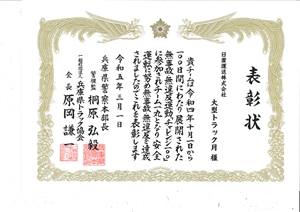 表彰状
日豊運送株式会社
大型トラック月 様
貴チームは令和四年十月一日から
一〇〇日間にわたり展開された
無事故無違反運動「チャレンジ一〇〇」
に参加されチーム一丸となり安全
運転に努め無事故無違反を達成
されましたのでこれを表彰します
令和五年三月一日
兵庫県警察本部長
警視監 桐原弘毅
一般社団法人 兵庫県トラック協会
会長 原岡謙一